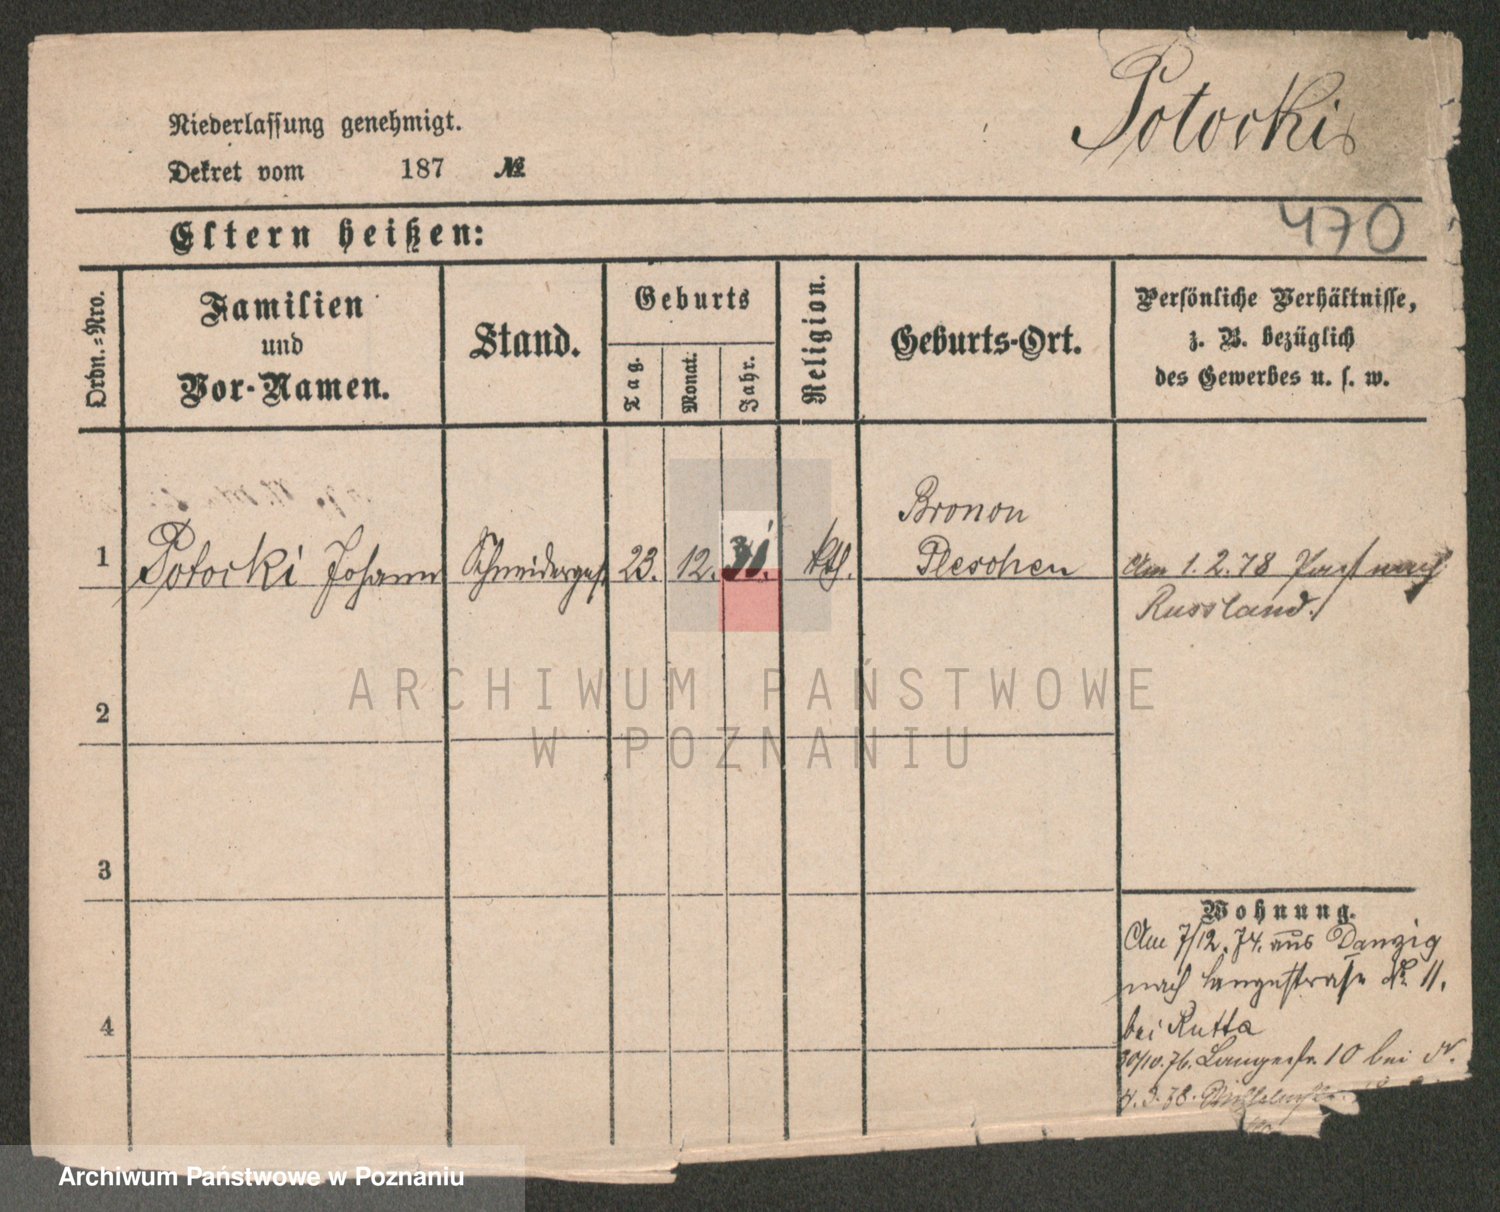 Potocki
Niederlassung genehmigt.
Dekret vom 187 №
470
Eltern heißen:
Ordn.-Nro.
Familien
und
Vor-Namen.
Stand.
Geburts
Tag.
Monat.
Jahr.
Religion.
Geburts-Ort.
Persönliche Verhältnisse,
z. B. bezüglich
des Gewerbes u. s. w.
1 Potocki Johann Schneiderges. 23. 12. kth.
Bronow
Pleschen
Am 1.2.78 Paß nach
Russland.
2
3
4
Wohnung.
Am 7/12.74. aus Danzig
nach Langestraße № 11.
bei Rutta
30/10.76. Langestr. 10 bei
4.3.78.
ARCHIWUM PAŃSTWOWE
W POZNANIU
Archiwum Państwowe w Poznaniu